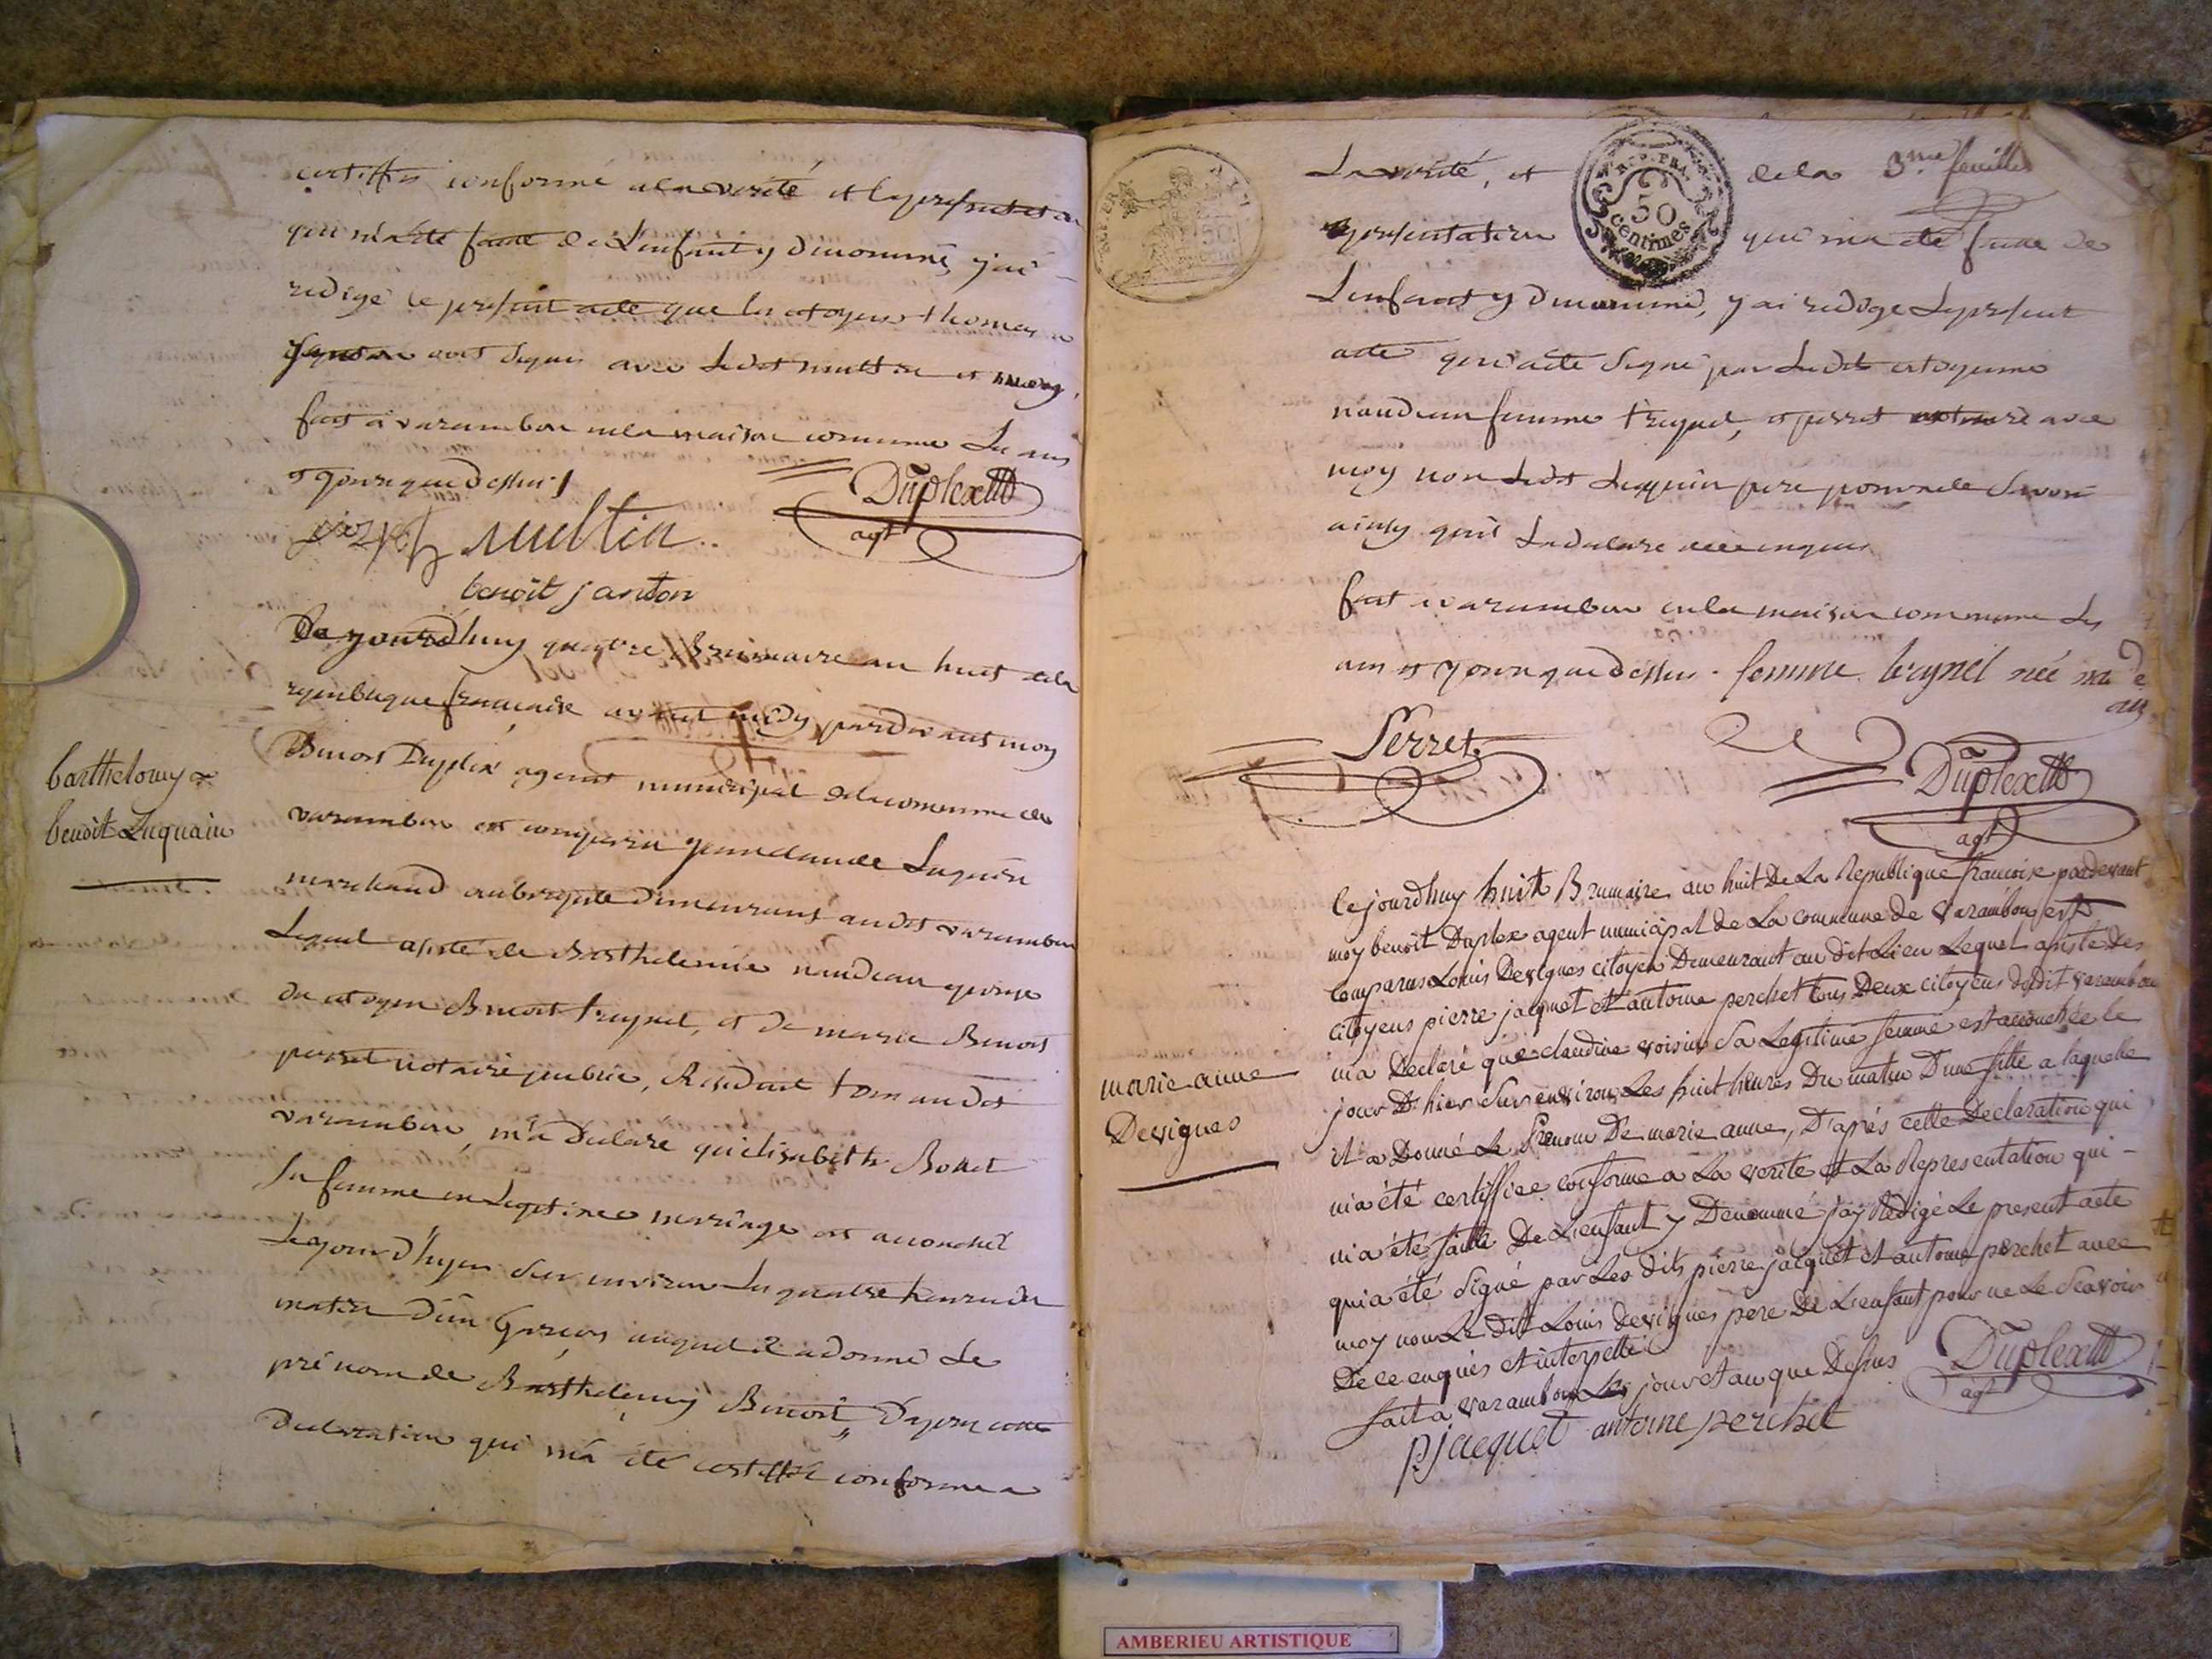 certiffié conforme a la verité et la presentation
qui m'a été faitte de L'enfant y denommé, j'ai
redigé le present acte que les citoyens thomas
janton ont signés avec Ledit multin et moy,
fait a varambon en la maison commune Les ans
et jour que dessus
Duplex
agt
joseph multin
benoit janton
Ce jourd'huy quatre Brumaire an huit de la
republique francaise avant midy pardevant moy
Benoit Duplex agent municipal de la commune de
varambon est comparu jean claude Luquin
marchand aubergiste demeurant audit varambon
Lequel assisté de Barthelemie naudeau epouse
du citoyen Benoit treynet, et de marie Benoit
perret notaire public, Residant tous audit
varambon, m'a declaré qu'elisabeth Bollet
sa femme en Legitime mariage est accouchée
Le jour d'hyer sur environ les quatre heures du
matin d'un Garçon auquel il a donné Le
prénom de Barthelemy Benoit, D'apres cette
Declaration qui m'a été certiffié conforme a
barthelomy
benoit Luquain
La verité, et de la 3.me feuille
representation qui m'a été faitte de
REP. FRA.
50
centimes
L'enfant y denommé, j'ai redigé Le present
acte qui a été signé par Ladite citoyenne
naudeau femme treynet, et perret notaire avec
moy non Ledit Luquin pere pour ne le savoir
ainsy qu'il La declaré de ce enquis
fait a varambon en la maison commune Les
ans et jour que dessus. femme treynet née nade
au
Perret
Duplex
agt
Ce jourd'huy huit Brumaire an huit De La Republique francoise pardevant
moy benoit Duplex agent municipal de La commune de varambon est
comparus Louis Devignes citoyen Demeurant au dit Lieu Lequel assisté des
citoyens pierre jacquet et antoine perchet tous Deux citoyens dudit varambon
m'a Declaré que claudine voisin sa Legitime femme est accouchée le
jour D'hier sur environ Les huit heures Du matin D'une fille a laquelle
il a Donné Le prenom De marie anne, D'aprés cette Declaration qui
m'a été certiffiee conforme a La verité et La Representation qui
m'a été faitte De L'enfant y Denommé j'ay Redigé Le present acte
qui a été signé par Les dits pierre jacquet et antoine perchet avec
moy non Le dit Louis devignes pere De L'enfant pour ne Le Scavoir
De ce enquies et interpellé
fait a varambon Les jour et an que Dessus
Duplex
agt
pjacquet antoine perchet
marie anne
Devignes
AMBERIEU ARTISTIQUE